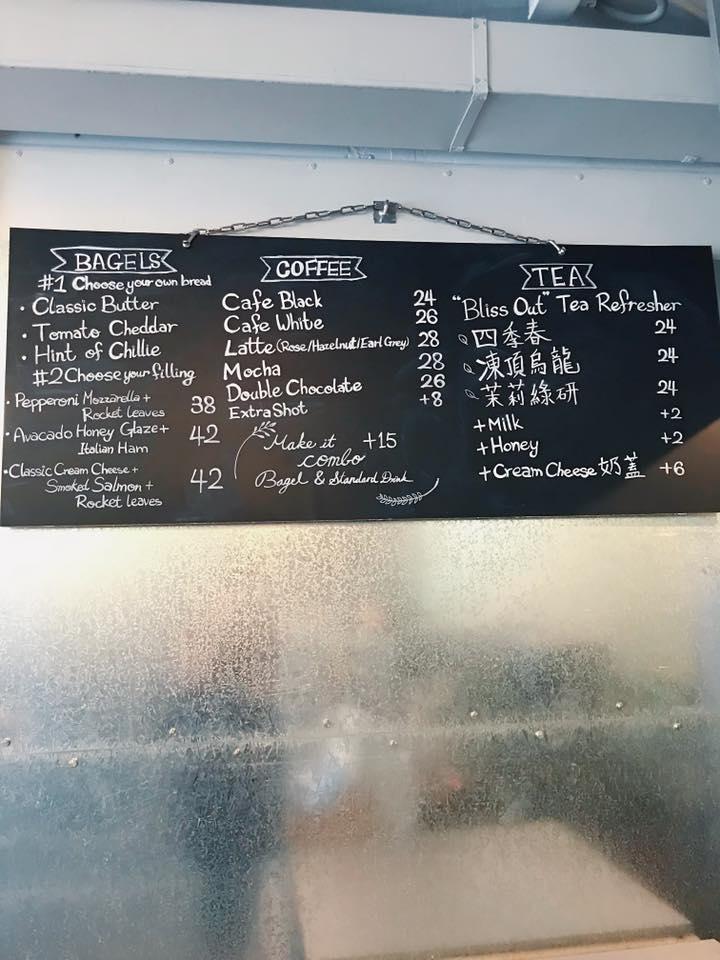 BAGELS
#1 Choose your own bread
• Classic Butter
• Tomato Cheddar
• Hint of Chillie
#2 Choose your filling
• Pepperoni Mozzarella +
Rocket leaves 38
• Avacado Honey Glaze +
Italian Ham 42
• Classic Cream Cheese +
Smoked Salmon +
Rocket leaves 42
COFFEE
Cafe Black 24
Cafe White 26
Latte (Rose/Hazelnut/Earl Grey) 28
Mocha 28
Double Chocolate 26
Extra Shot +8
Make it +15
combo
Bagel & Standard Drink
TEA
"Bliss Out" Tea Refresher
四季春 24
凍頂烏龍 24
茉莉綠研 24
+Milk +2
+Honey +2
+Cream Cheese 奶蓋 +6